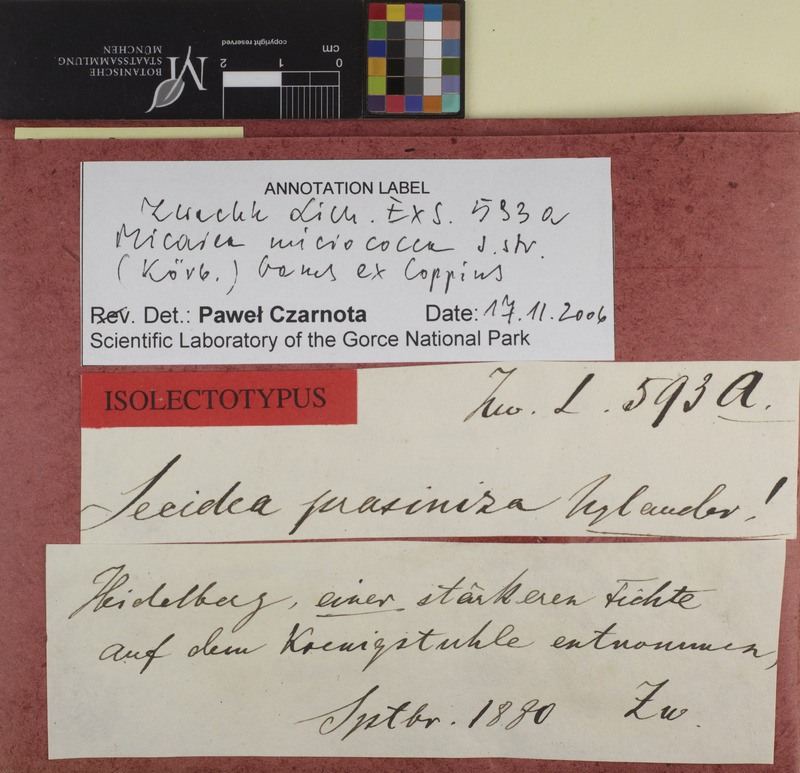 BOTANISCHE
STAATSSAMMLUNG
MÜNCHEN
copyright reserved
2 1 0
cm
ANNOTATION LABEL
Zwackh Lich. Exs. 593 a
Micarea micrococca s. str.
(Körb.) Gams ex Coppins
Rev. Det.: Paweł Czarnota Date: 17.11.2006
Scientific Laboratory of the Gorce National Park
ISOLECTOTYPUS
Zw. L. 593 A.
Lecidea prasiniza Nylander!
Heidelberg, einer stärkeren Fichte
auf dem Koenigstuhle entnommen,
Sptbr. 1880 Zw.